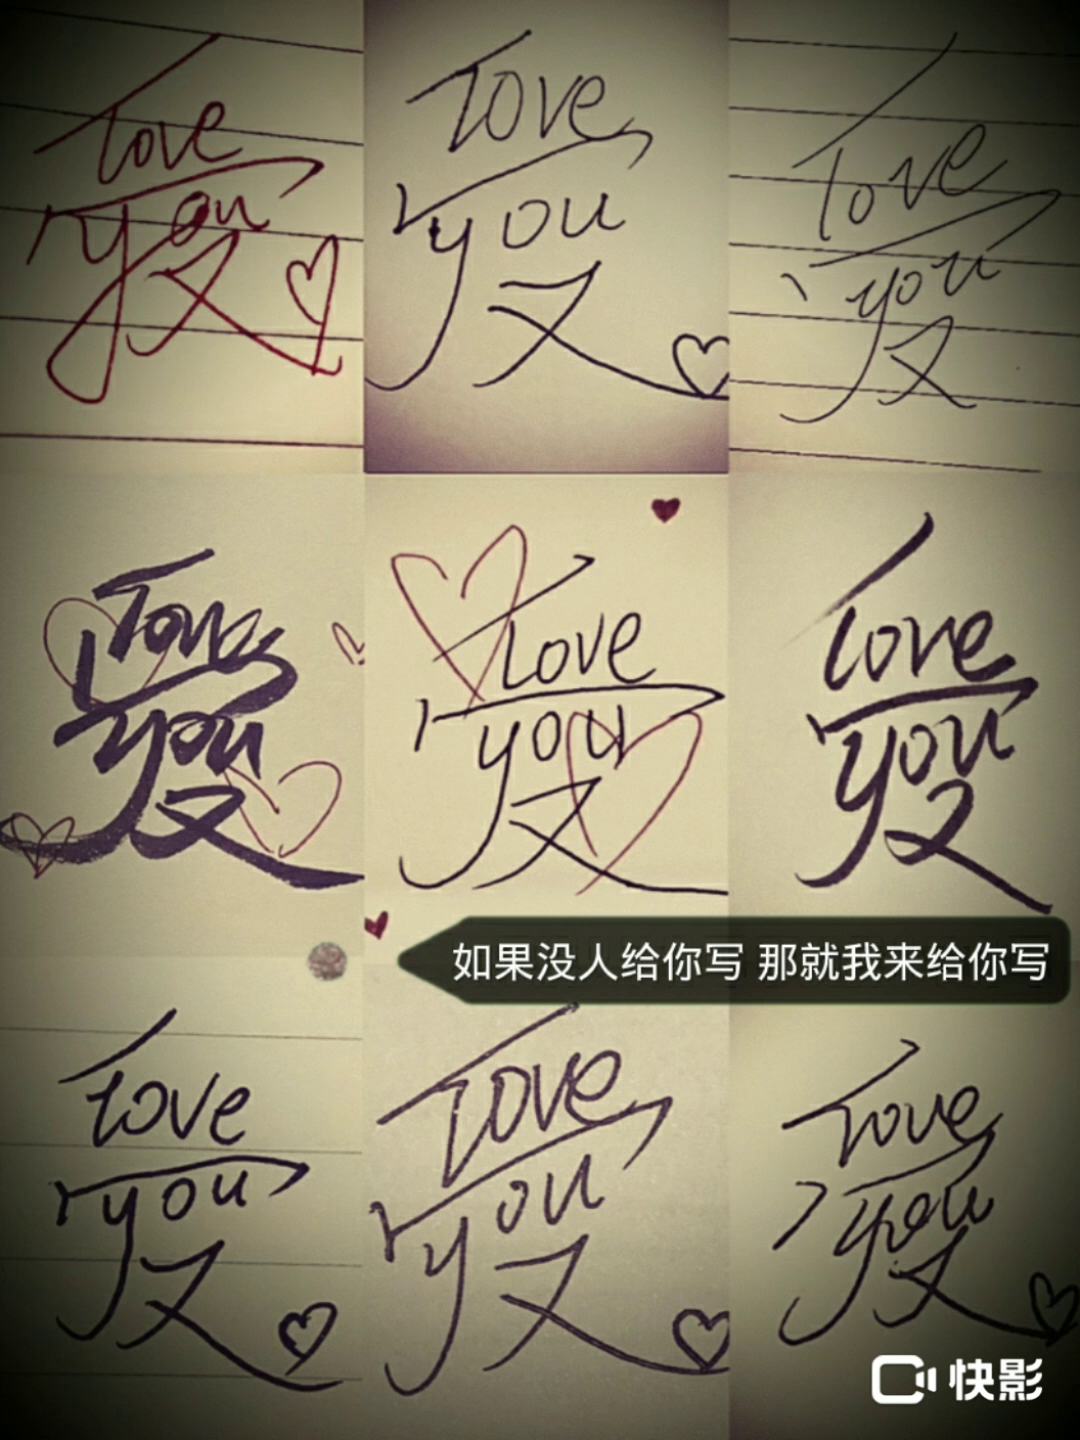 love
you
又
love
you
又
love
you
又
love
you
又
love
you
又
love
you
又
如果没人给你写 那就我来给你写
love
you
又
love
you
又
love
you
又
快影